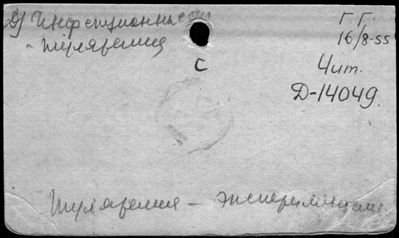 Д) Инфекционные
- туляремия
Г Г.
16/8-55
С
Чит.
Д-14049.
Туляремия - эксперимент.